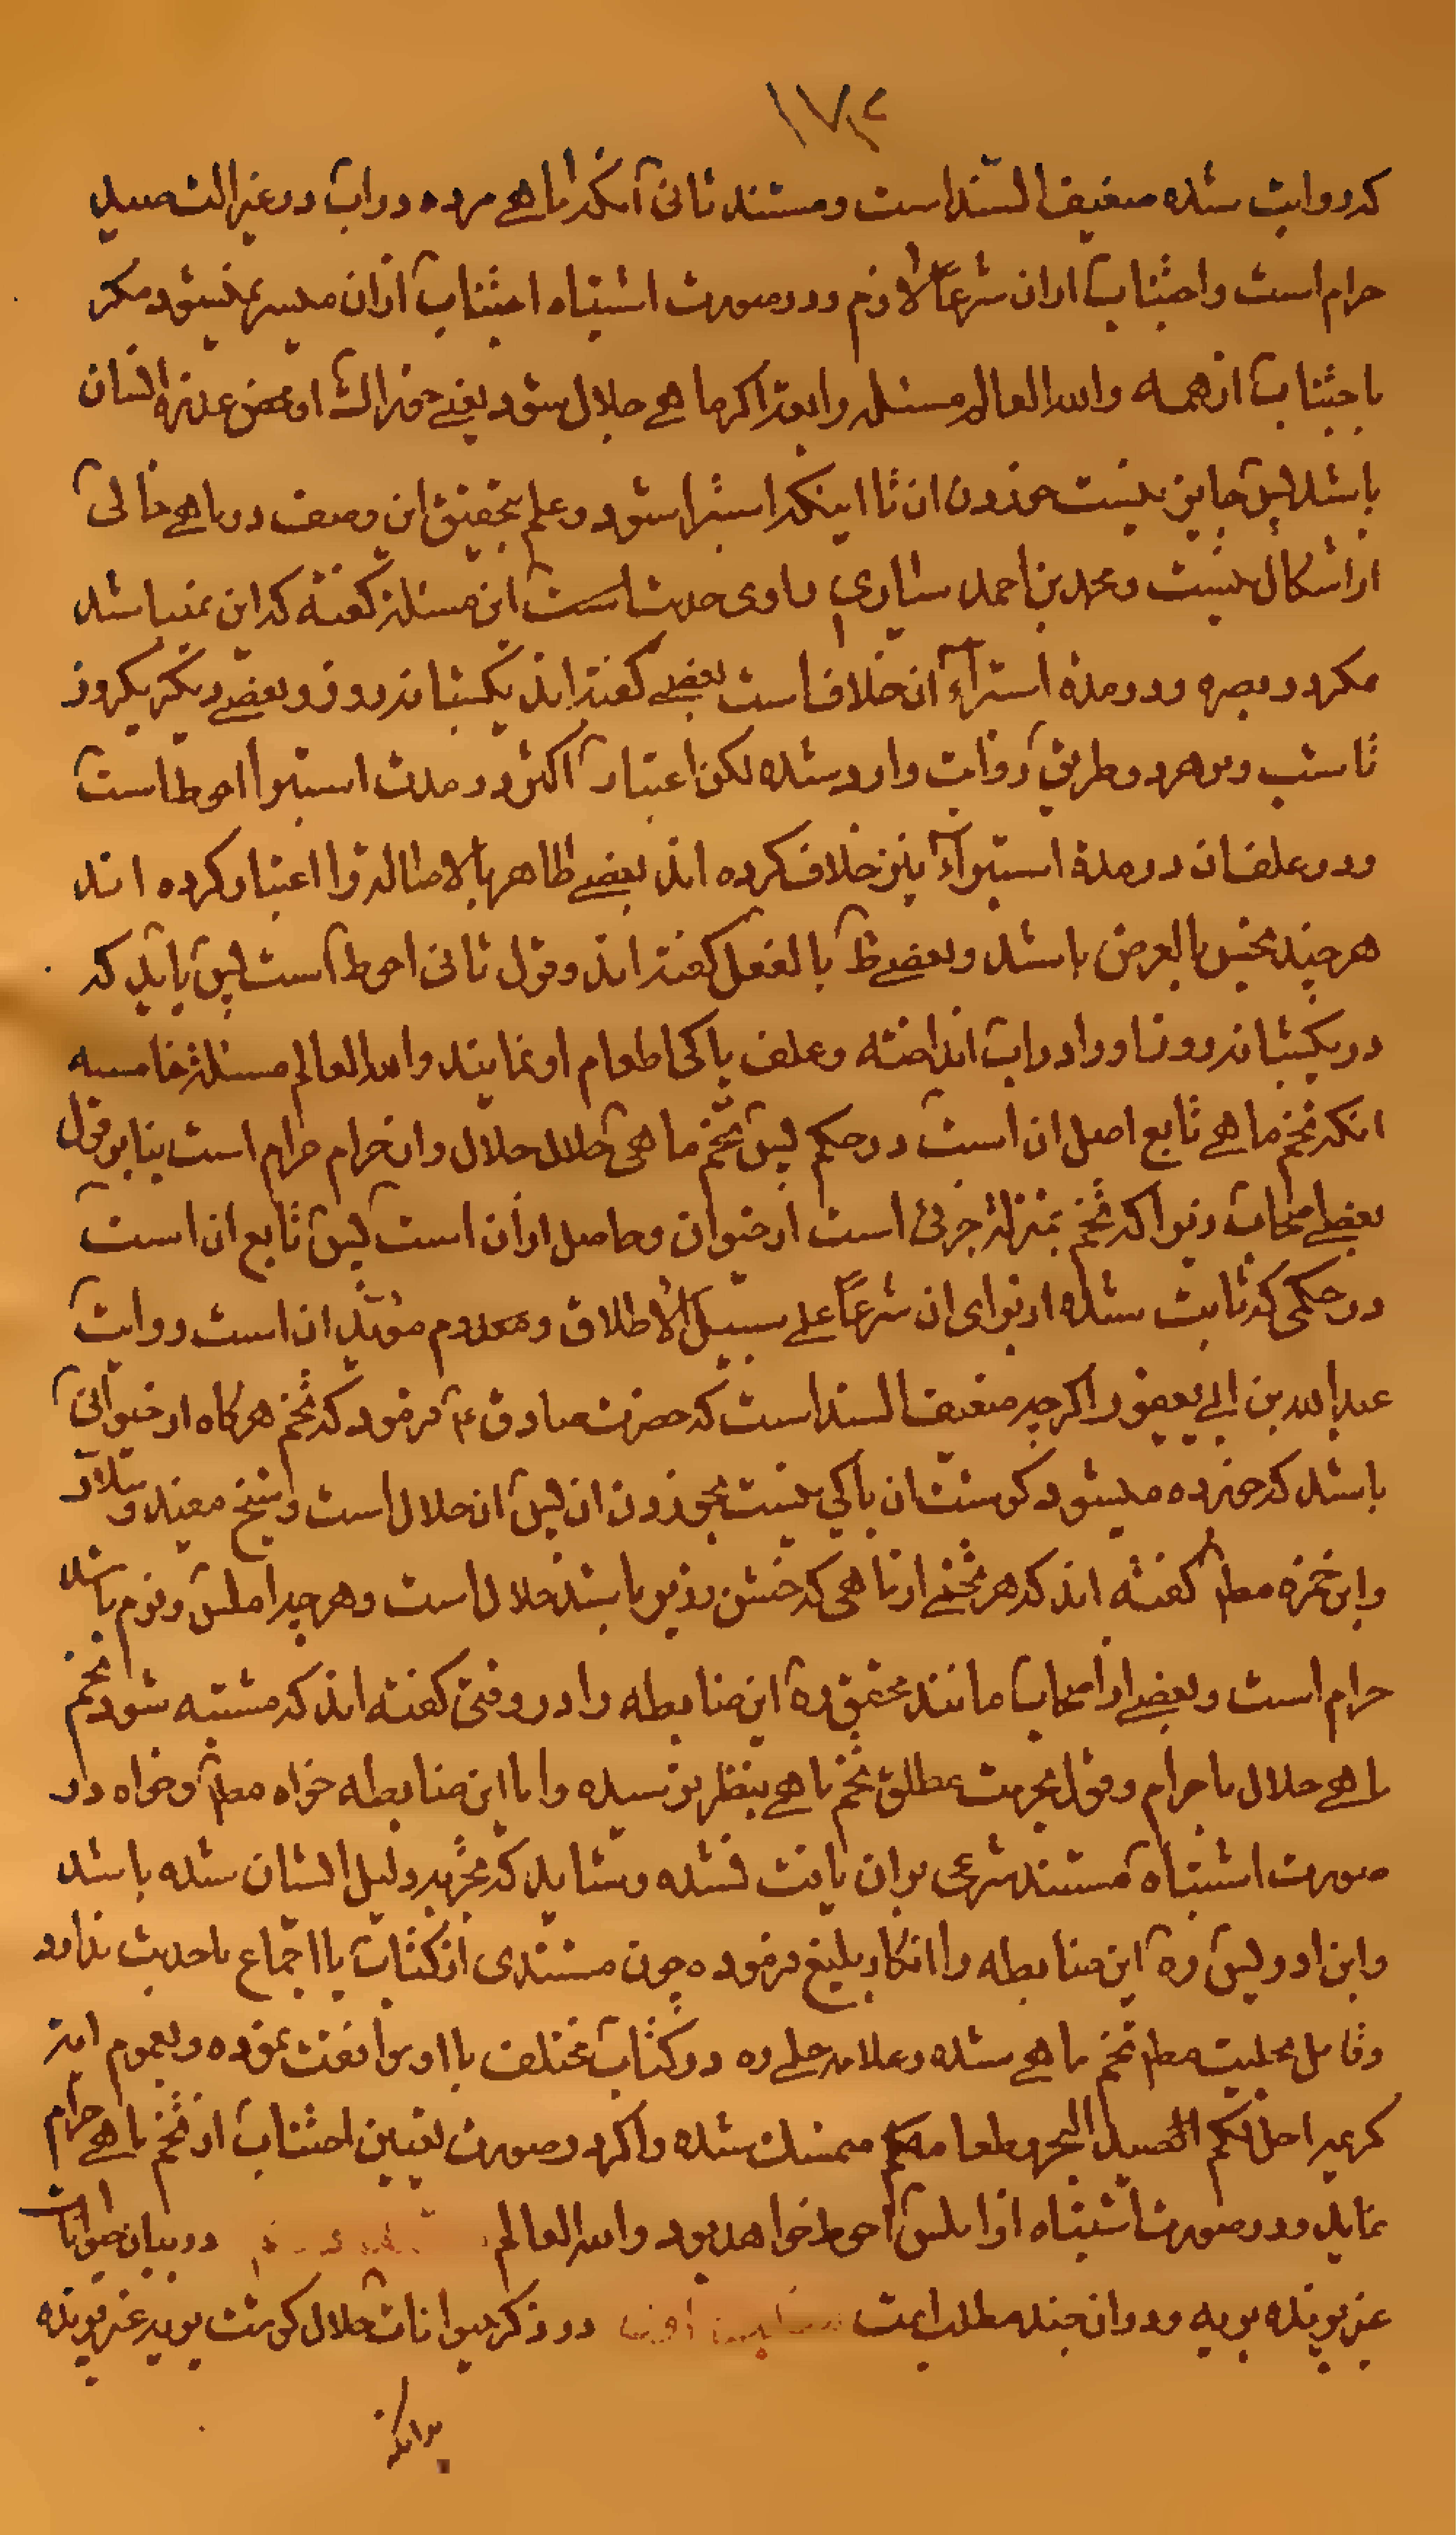 ۱۷۴
که روایت شده ضعیف السند است و مستند ثانی آنکه ماهی مرده در آب در غیر الت صید
حرام است و اجتناب از ان شرعاً لازم و در صورت اشتباه اجتناب از ان میسر نمیشود مکر
باجتناب از همه والله العالم مسئله رابعة اکر ماهی جلال شود یعنی خوراک او محض عذره انسان
باشد پس جایز نیست خوردن ان تا اینکه استبرا شود و علم بتحقیق این وصف در ماهی خالی
از اشکال نیست و محمد بن احمد سیاری راوی حدیث است این مسئله کفته که این نمیباشد
مکر در بصره و در مدة استبراء ان خلاف است بعضی کفته اند یکشبانه روز و بعضی دیکر یکروز
تا شب و بر هر دو طریق روایت وارد شده لکن اعتبار اکثر در مدت استبرا احوط است
و در علف ان در مدة استبراء نیز خلاف کرده اند بعضی طاهر بالاصاله را اعتبار کرده اند
هر چند نجس بالعرض باشد و بعضی ظ بالفعل کفته اند و قول ثانی احوط است پس باید که
در یکشبانه روز او را در اب انداخته و علف پاکی اطعام او نمایند والله العالم مسئلة خامسه
انکه تخم ماهی تابع اصل ان است در حکم پس تخم ماهی حلال حلال و ان حرام حرام است بنا بر قول
بعض اصحاب زیرا که تخم بمنزلة جزئی است از حیوان و حاصل از ان است پس تابع ان است
در حکمی که ثابت شده از برای ان شرعاً علی سبیل الاطلاق و معدوم مؤید ان است روایت
عبدالله بن ابی یعفور اکر چه ضعیف السند است که حضرت صادق ع فرمود که تخم هرکاه از حیوانی
باشد که خورده میشود کوشت ان باکی نیست بخوردن ان پس ان حلال است و شیخ مفید و سلار
و ابن حمزه مطلم کفته اند که هر تخمی از ماهی که خشن و زبر باشد حلال است و هر چه املس و نرم باشد
حرام است و بعضی از اصحاب مانند محقق ره این ضابطه را در وقتی کفته اند که مشتبه شود تخم
ماهی حلال با حرام و قول بحرمت مطلق تخم ماهی بنظر نرسیده و اما این ضابطه خواه مطلم و خواه در
صورت اشتباه مستند شرعی بر ان یافت نشده و شاید که تجربه دلیل ایشان شده باشد
و ابن ادریس ره این ضابطه را انکار بلیغ فرموده چون مستندی از کتاب یا اجماع یا حدیث ندارد
و قایل بحلیت مطم تخم ماهی شده و علامه حلی ره در کتاب مختلف با او موافقت نموده و بعموم ایه
کریمه احل لکم الصید البحر و طعامه لکم متمسک شده و اکر در صورت تعیین اجتناب از تخم ماهی حرام
نماید و در صورت اشتباه از املس احوط خواهد بود والله العالم در بیان حیوانات
غیر پرنده بریه و در ان چند مطلب است در ذکر حیوانات حلال کوشت بریه غیر پرنده